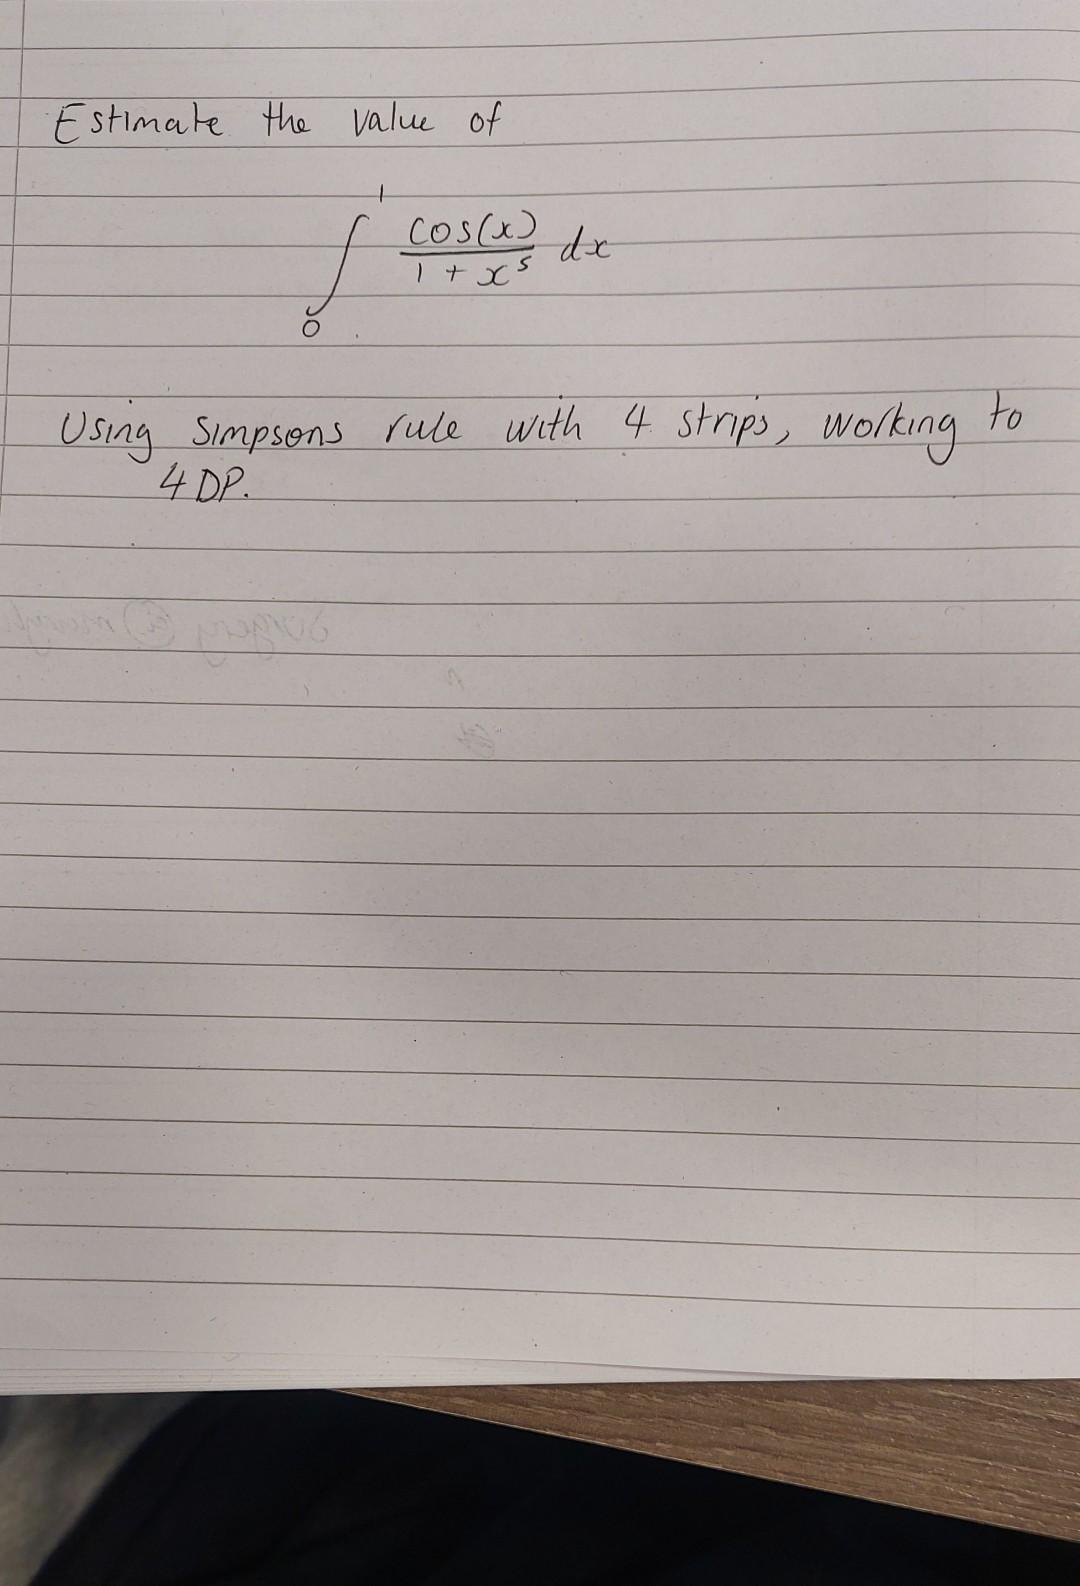 Estimate the value of
∫₀¹ cos(x)/(1 + x⁵) dx
Using Simpsons rule with 4 strips, working to
4 DP.